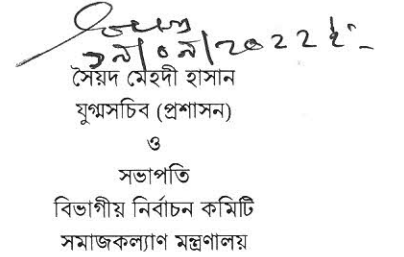 ১৯/০৯/2022 ইং
সৈয়দ মেহদী হাসান
যুগ্মসচিব (প্রশাসন)
ও
সভাপতি
বিভাগীয় নির্বাচন কমিটি
সমাজকল্যাণ মন্ত্রণালয়